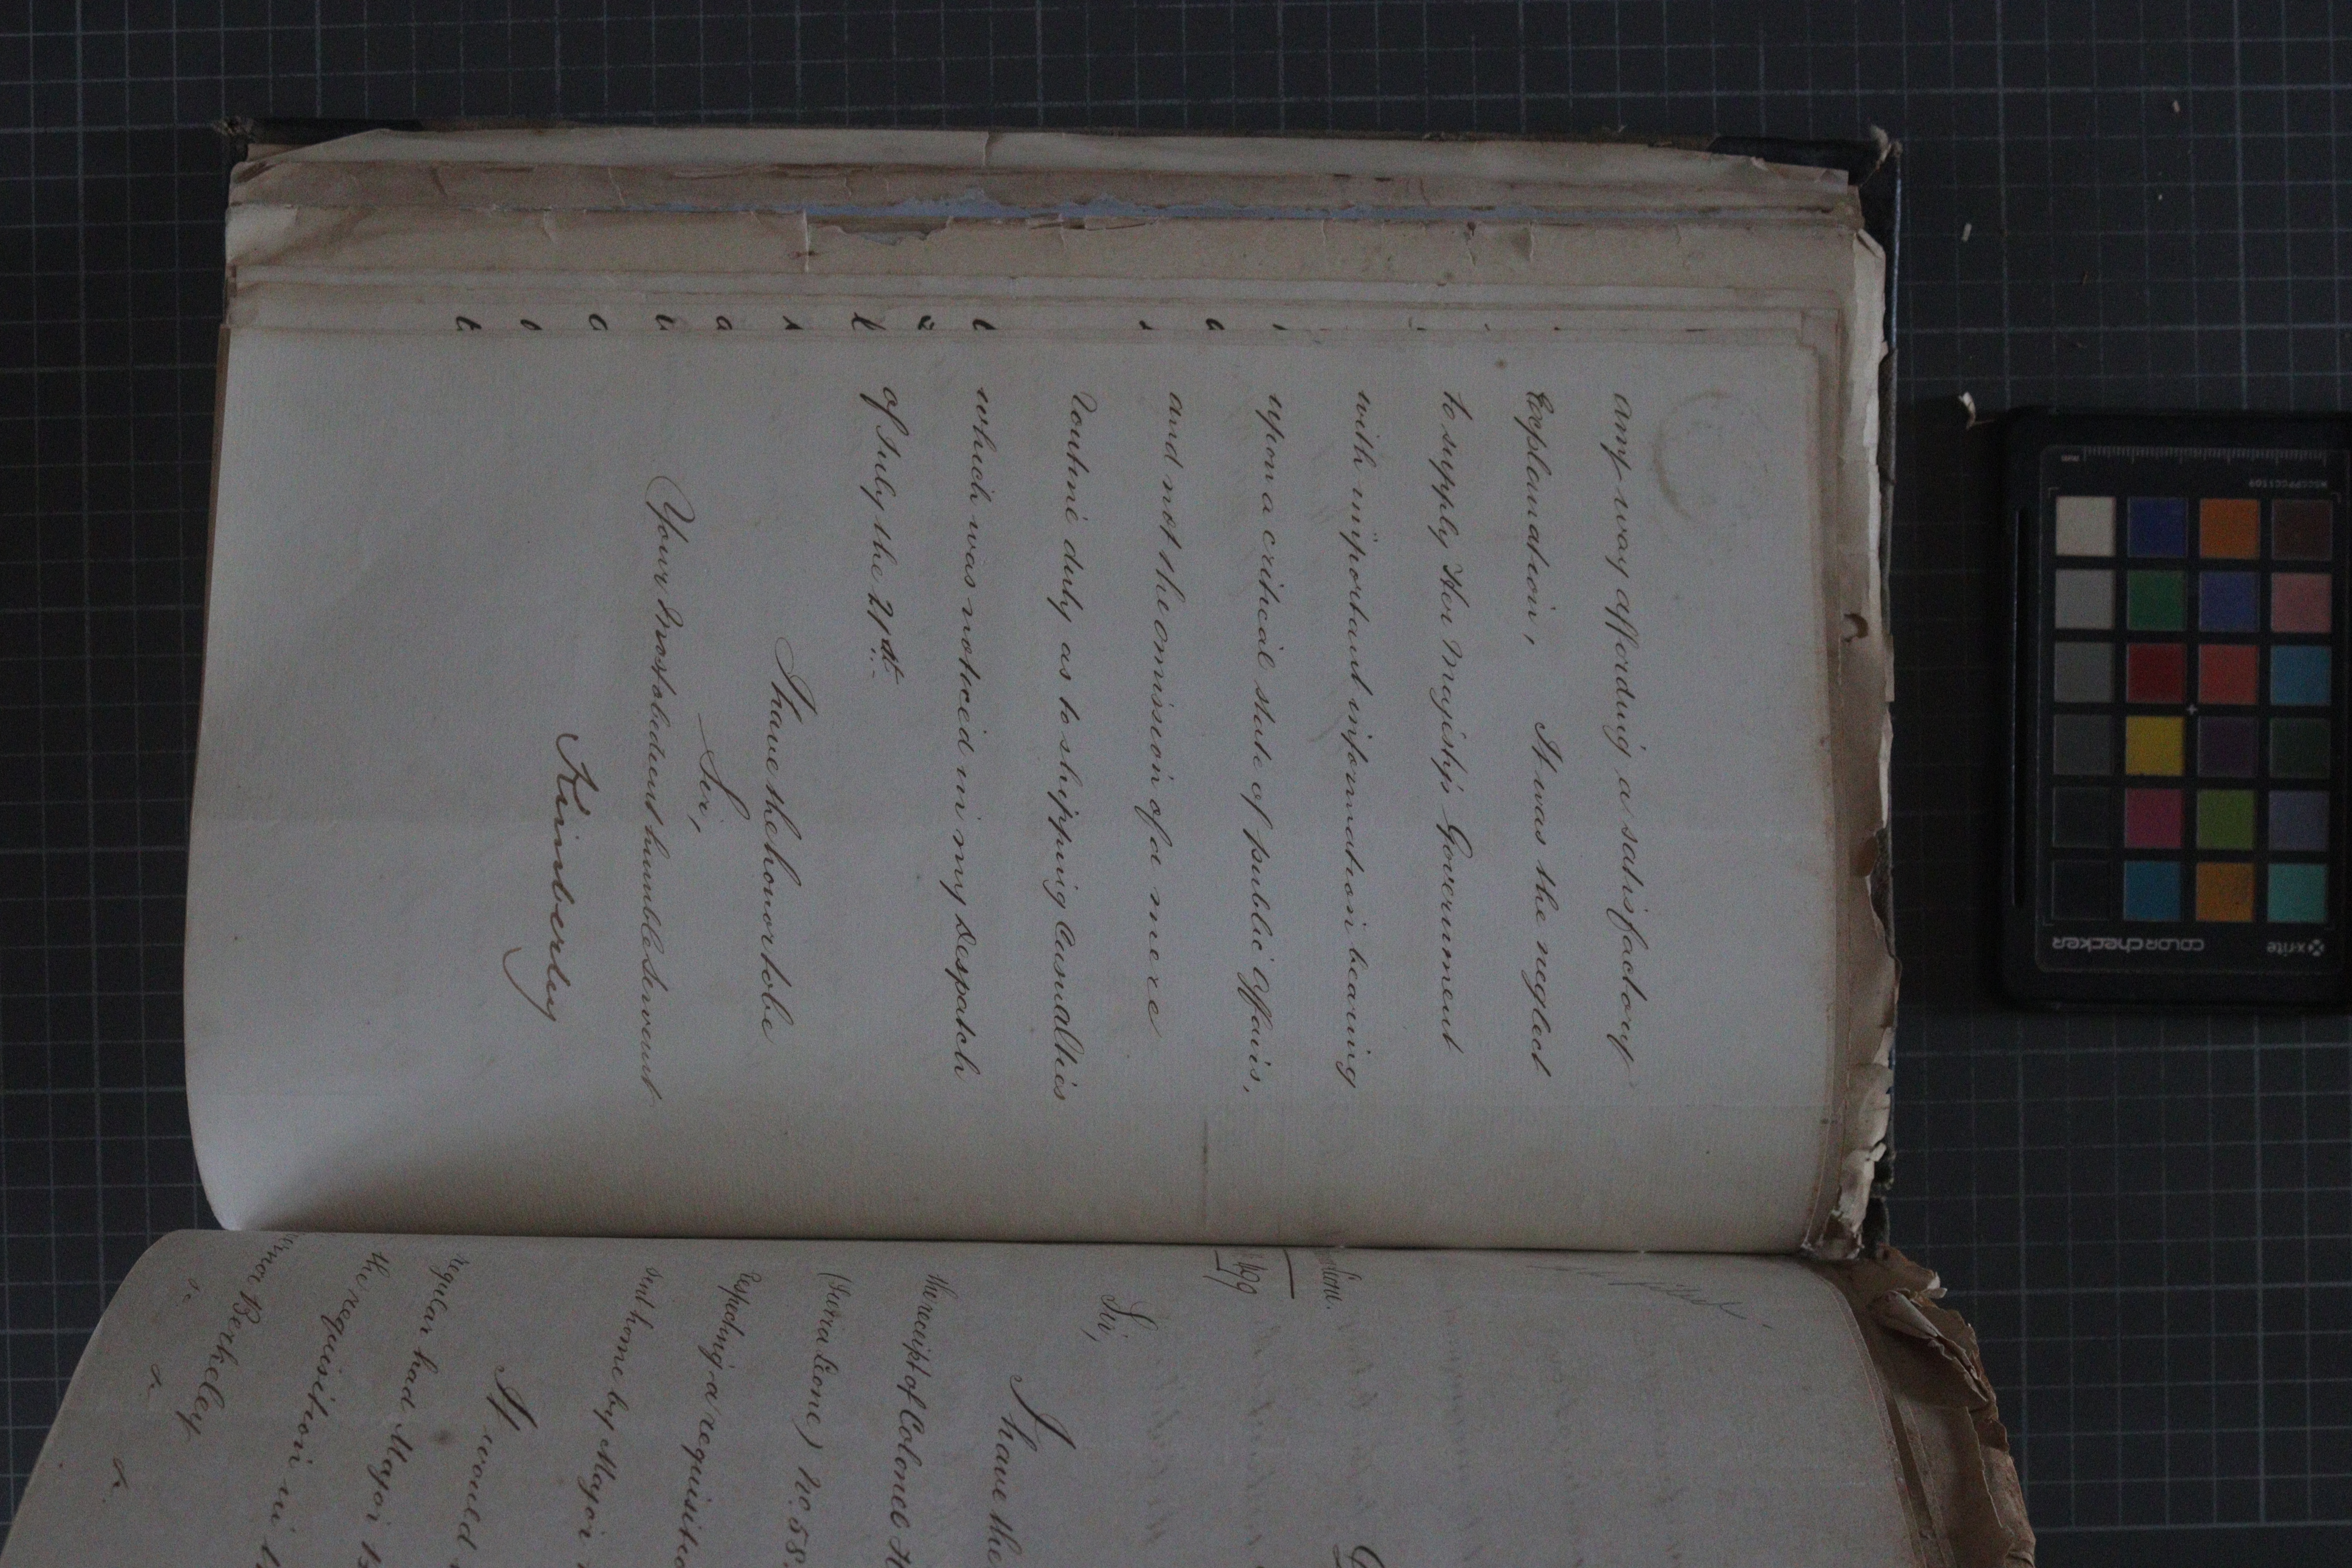 any way affording a satisfactory
Explanation, It was the neglect
to supply Her Majesty's Government
with important information bearing
upon a critical state of public affairs,
and not the omission of a mere
routine duty as to shipping Casualties
which was noticed in my Despatch
of July the 21st.
I have the honor to be
Sir,
Your most obedient humble Servant
Kimberley
Sir,
I have the
the receipt of Colonel
(Sierra Leone) No. 58.
respecting a requisitio
sent home by Major
It would
regular had Major
the requisition in
Berkeley
x-rite
colorchecker
MSCCPPCC1109
mm